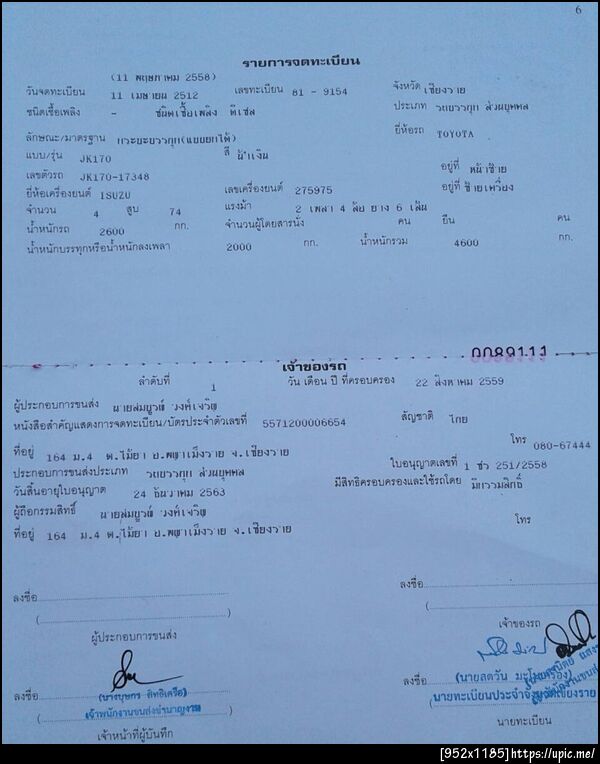 6
รายการจดทะเบียน
(11 พฤษภาคม 2558)
วันจดทะเบียน 11 เมษายน 2512 เลขทะเบียน 81 - 9154 จังหวัด เชียงราย
ชนิดเชื้อเพลิง - ชนิดเชื้อเพลิง ดีเซล ประเภท รถบรรทุก ส่วนบุคคล
ลักษณะ/มาตรฐาน กระบะบรรทุก(แบบยกได้) ยี่ห้อรถ TOYOTA
แบบ/รุ่น JK170 สี น้ำเงิน
เลขตัวรถ JK170-17348 อยู่ที่ หน้าซ้าย
ยี่ห้อเครื่องยนต์ ISUZU เลขเครื่องยนต์ 275975 อยู่ที่ ซ้ายเครื่อง
จำนวน 4 สูบ 74 แรงม้า 2 เพลา 4 ล้อ ยาง 6 เส้น
น้ำหนักรถ 2600 กก. จำนวนผู้โดยสารนั่ง คน ยืน คน
น้ำหนักบรรทุกหรือน้ำหนักลงเพลา 2000 กก. น้ำหนักรวม 4600 กก.
0089111
เจ้าของรถ
ลำดับที่ 1 วัน เดือน ปี ที่ครอบครอง 22 สิงหาคม 2559
ผู้ประกอบการขนส่ง นายสมบูรณ์ วงค์เจริญ
หนังสือสำคัญแสดงการจดทะเบียน/บัตรประจำตัวเลขที่ 5571200006654 สัญชาติ ไทย
โทร 080-67444
ที่อยู่ 164 ม.4 ต.ไม้ยา อ.พญาเม็งราย จ.เชียงราย
ประกอบการขนส่งประเภท รถบรรทุก ส่วนบุคคล ใบอนุญาตเลขที่ 1 ชร 251/2558
วันสิ้นอายุใบอนุญาต 24 ธันวาคม 2563 มีสิทธิครอบครองและใช้รถโดย มีกรรมสิทธิ์
ผู้ถือกรรมสิทธิ์ นายสมบูรณ์ วงค์เจริญ
ที่อยู่ 164 ม.4 ต.ไม้ยา อ.พญาเม็งราย จ.เชียงราย โทร
ลงชื่อ ลงชื่อ
( ) (
ผู้ประกอบการขนส่ง เจ้าของรถ
ลงชื่อ ลงชื่อ
(นางบุษกร สิทธิเครือ) (นายลดวัน มะโนเครื่อง)
เจ้าพนักงานขนส่งชำนาญงาน นายทะเบียนประจำจังหวัดเชียงราย
เจ้าหน้าที่ผู้บันทึก นายทะเบียน
[952x1185]https://upic.me/